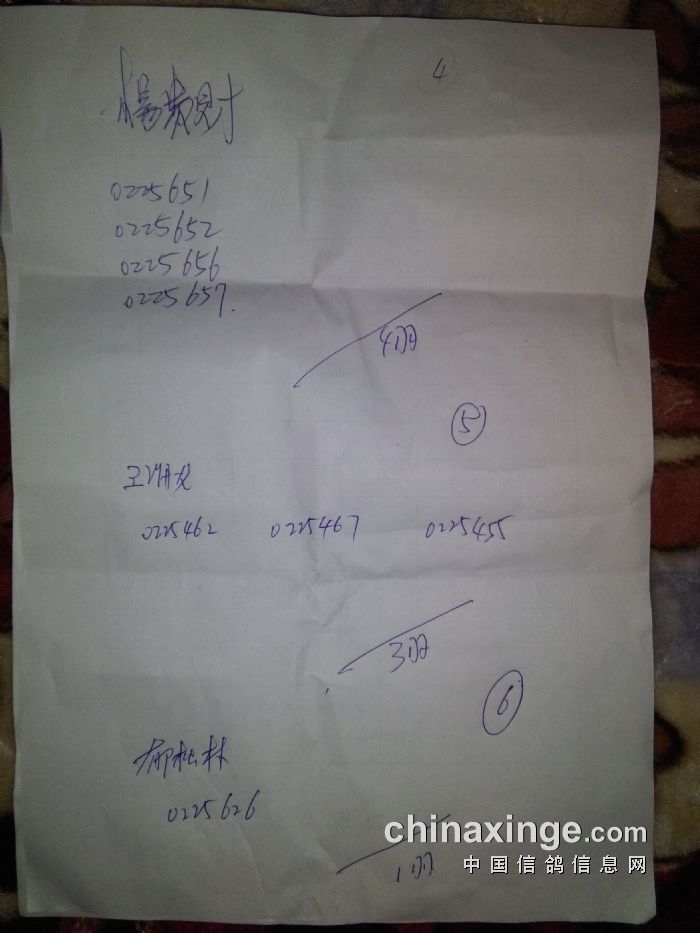 4
0225651
0225652
0225656
0225657.
4羽
5
0225462 0225467 0225455
3羽
6
0225626
1羽
chinaxinge.com
中国信鸽信息网